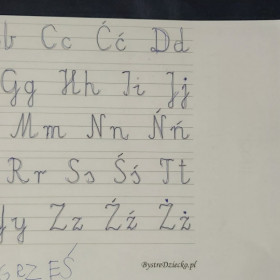 b Cc Ćć Dd
Gg Hh Ii Jj
Mm Nn Ńń
Rr Ss Śś Tt
y Zz Źź Żż
BystreDziecko.pl